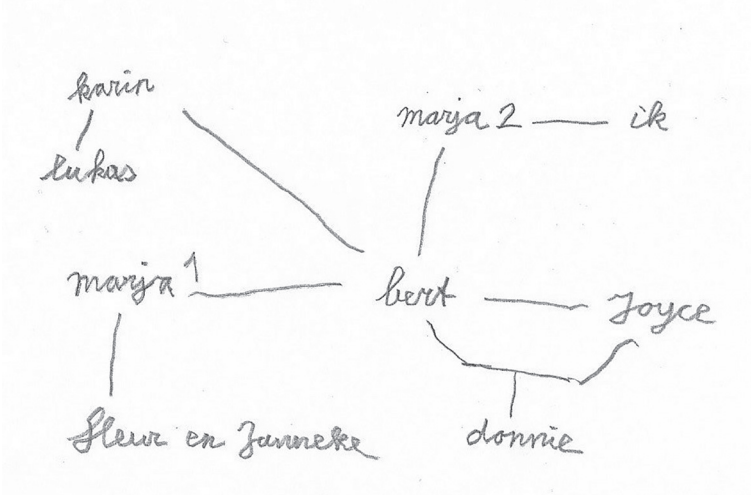 karin
marja 2
ik
lukas
marja 1
bert
Joyce
fleur en Janneke
donnie